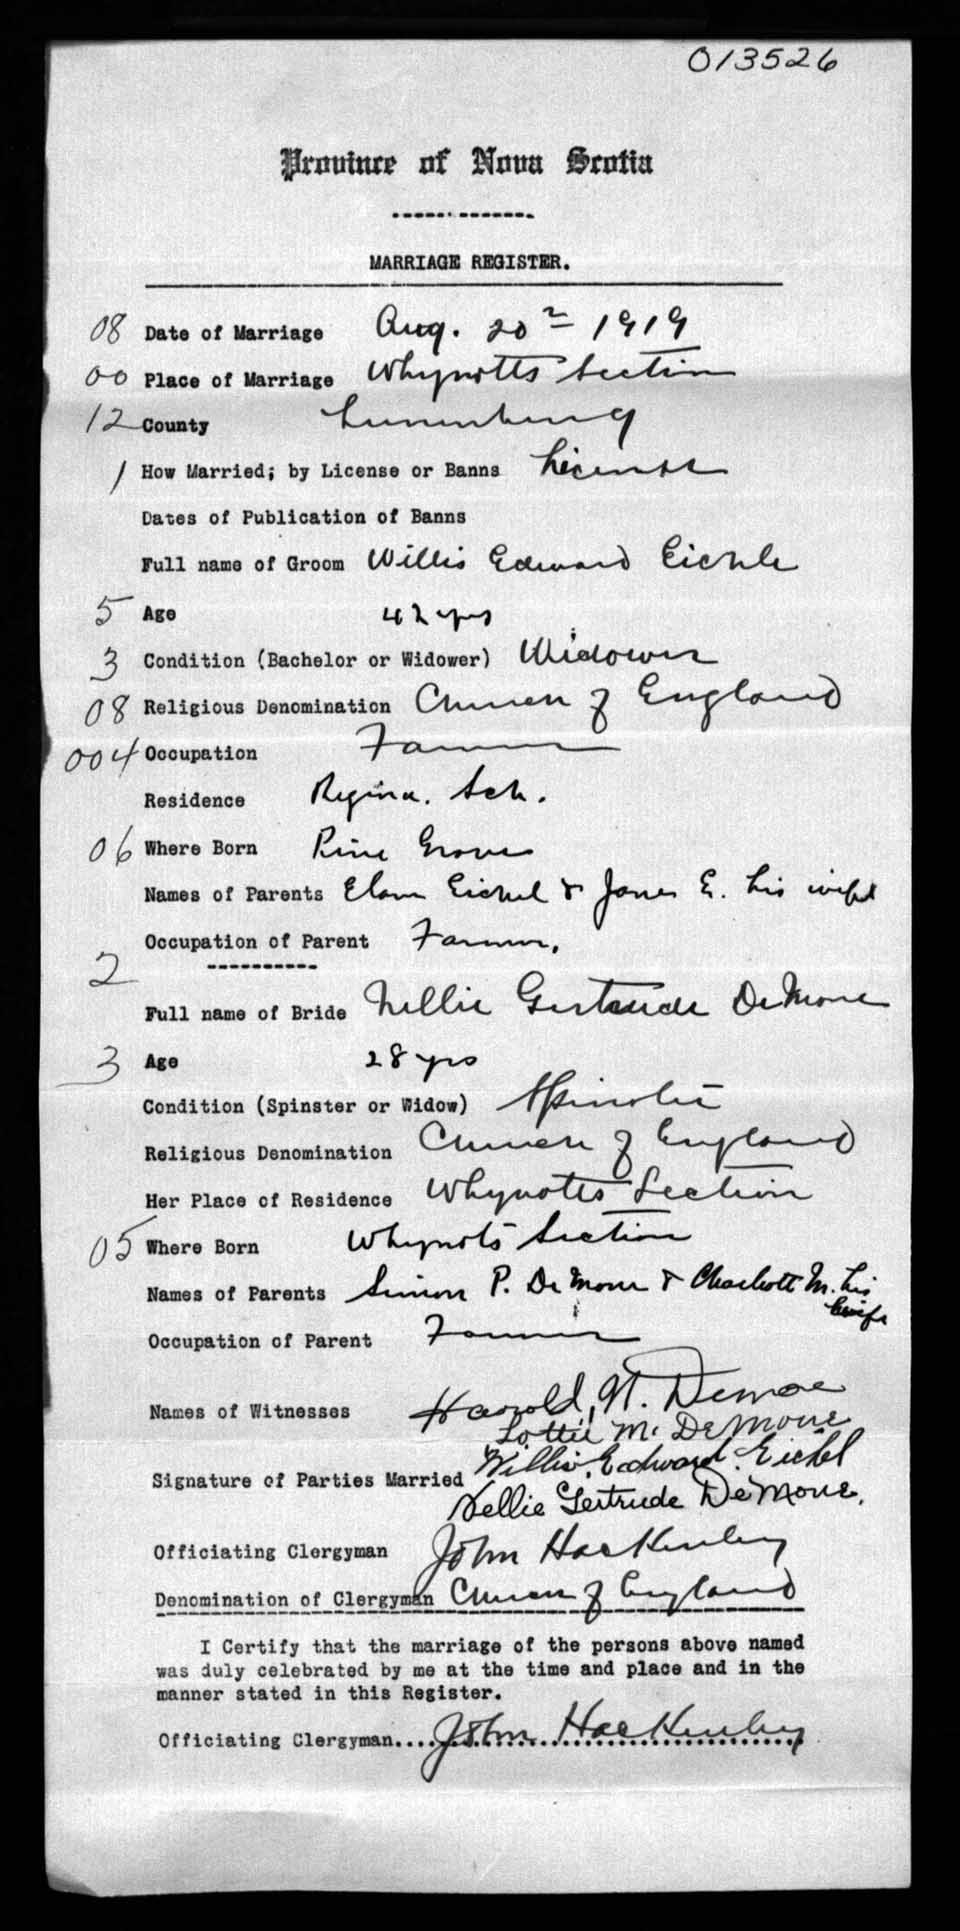 013526
Province of Nova Scotia
MARRIAGE REGISTER.
08 Date of Marriage Aug. 20th 1919
00 Place of Marriage Whynotts Section
12 County Lunenburg
1 How Married; by License or Banns License
Dates of Publication of Banns
Full name of Groom Willis Edward Eickle
5 Age 42 yrs
3 Condition (Bachelor or Widower) Widower
08 Religious Denomination Church of England
004 Occupation Farmer
Residence Regina. Sch.
06 Where Born Pine Grove
Names of Parents Elam Eickel & Jane E. his wife
Occupation of Parent Farmer.
2
Full name of Bride Nellie Gertrude DeMone
3 Age 28 yrs
Condition (Spinster or Widow) Spinster
Religious Denomination Church of England
Her Place of Residence Whynotts Section
05 Where Born Whynots Section
Names of Parents Simon P. DeMone & Charlott M. his
wife
Occupation of Parent Farmer
Names of Witnesses Harold, Demone
Lottie M. DeMone
Signature of Parties Married Willis Edward Eickel
Nellie Gertrude DeMone.
Officiating Clergyman John Hackenley
Denomination of Clergyman Church of England
I Certify that the marriage of the persons above named
was duly celebrated by me at the time and place and in the
manner stated in this Register.
Officiating Clergyman.... John Hackenley